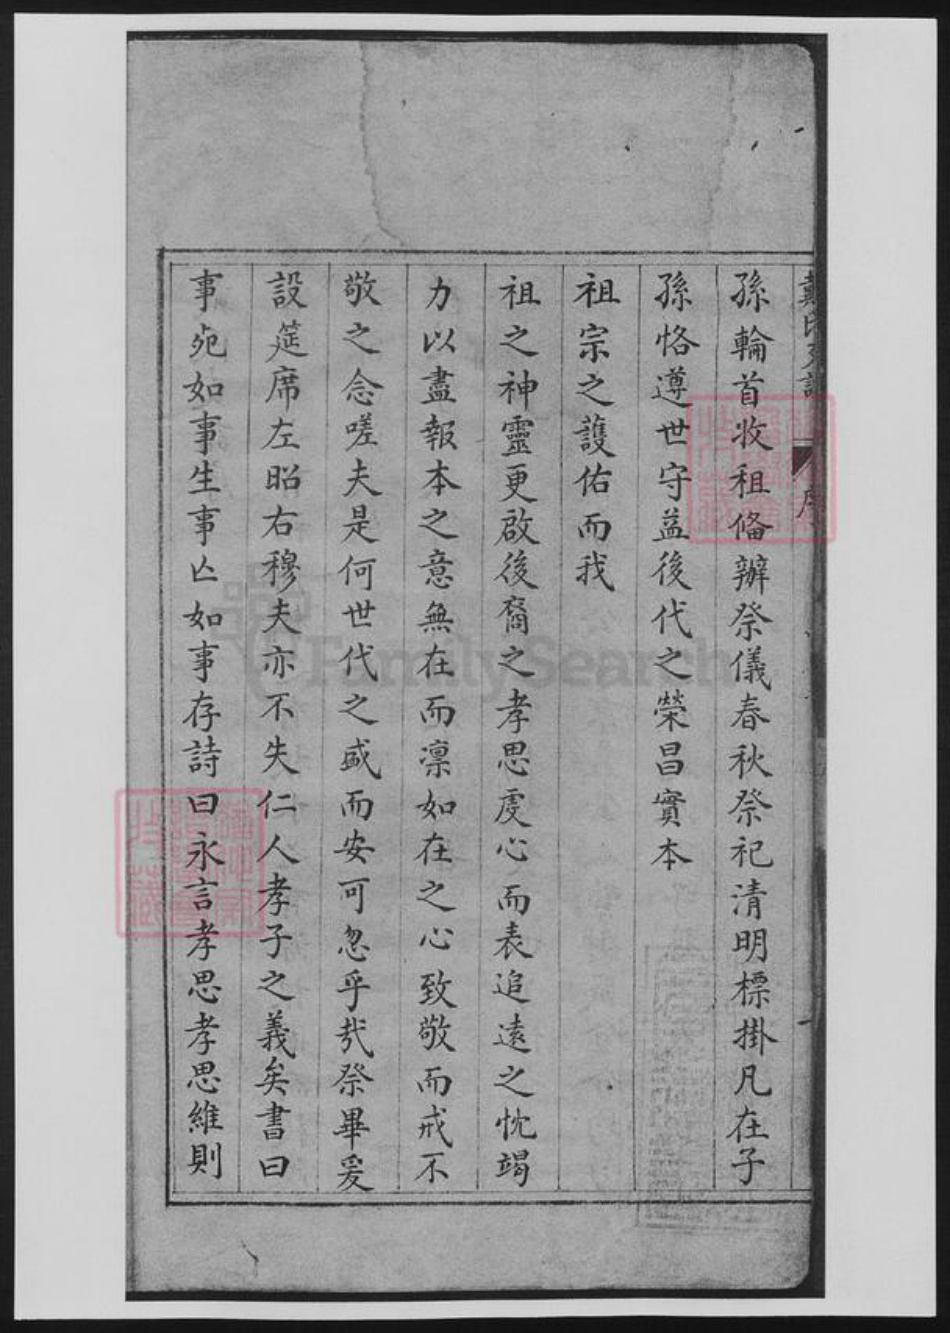 孫輪首收租俻辦祭儀春秋祭祀清明標掛凡在子
孫恪遵世守益後代之榮昌實本
祖宗之護佑而我
祖之神靈更啟後裔之孝思虔心而表追遠之忱竭
力以盡報本之意無在而凛如在之心致敬而戒不
敬之念嗟夫是何世代之盛而安可忽乎㢤祭畢爰
設筵席左昭右穆夫亦不失仁人孝子之義矣書曰
事宛如事生事亡如事存詩曰永言孝思孝思維則
FamilySearch